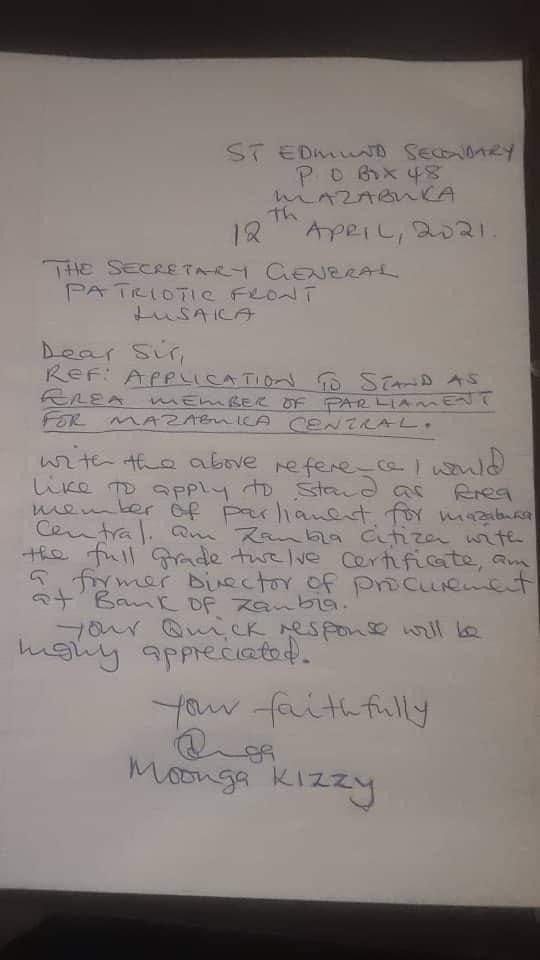 ST EDMUND SECONDARY
P. O BOX 48
MAZABUKA
12th APRIL, 2021.
THE SECRETARY GENERAL
PATRIOTIC FRONT
LUSAKA
Dear Sir,
REF: APPLICATION TO STAND AS
AREA MEMBER OF PARLIAMENT
FOR MAZABUKA CENTRAL.
with the above reference I would
like to apply to stand as Area
member of parliament for mazabuka
Central. am Zambia citizen with
the full grade twelve certificate, am
a former Director of procurement
at Bank OF Zambia.
your Quick response will be
highly appreciated.
Your faithfully
Moonga Kizzy